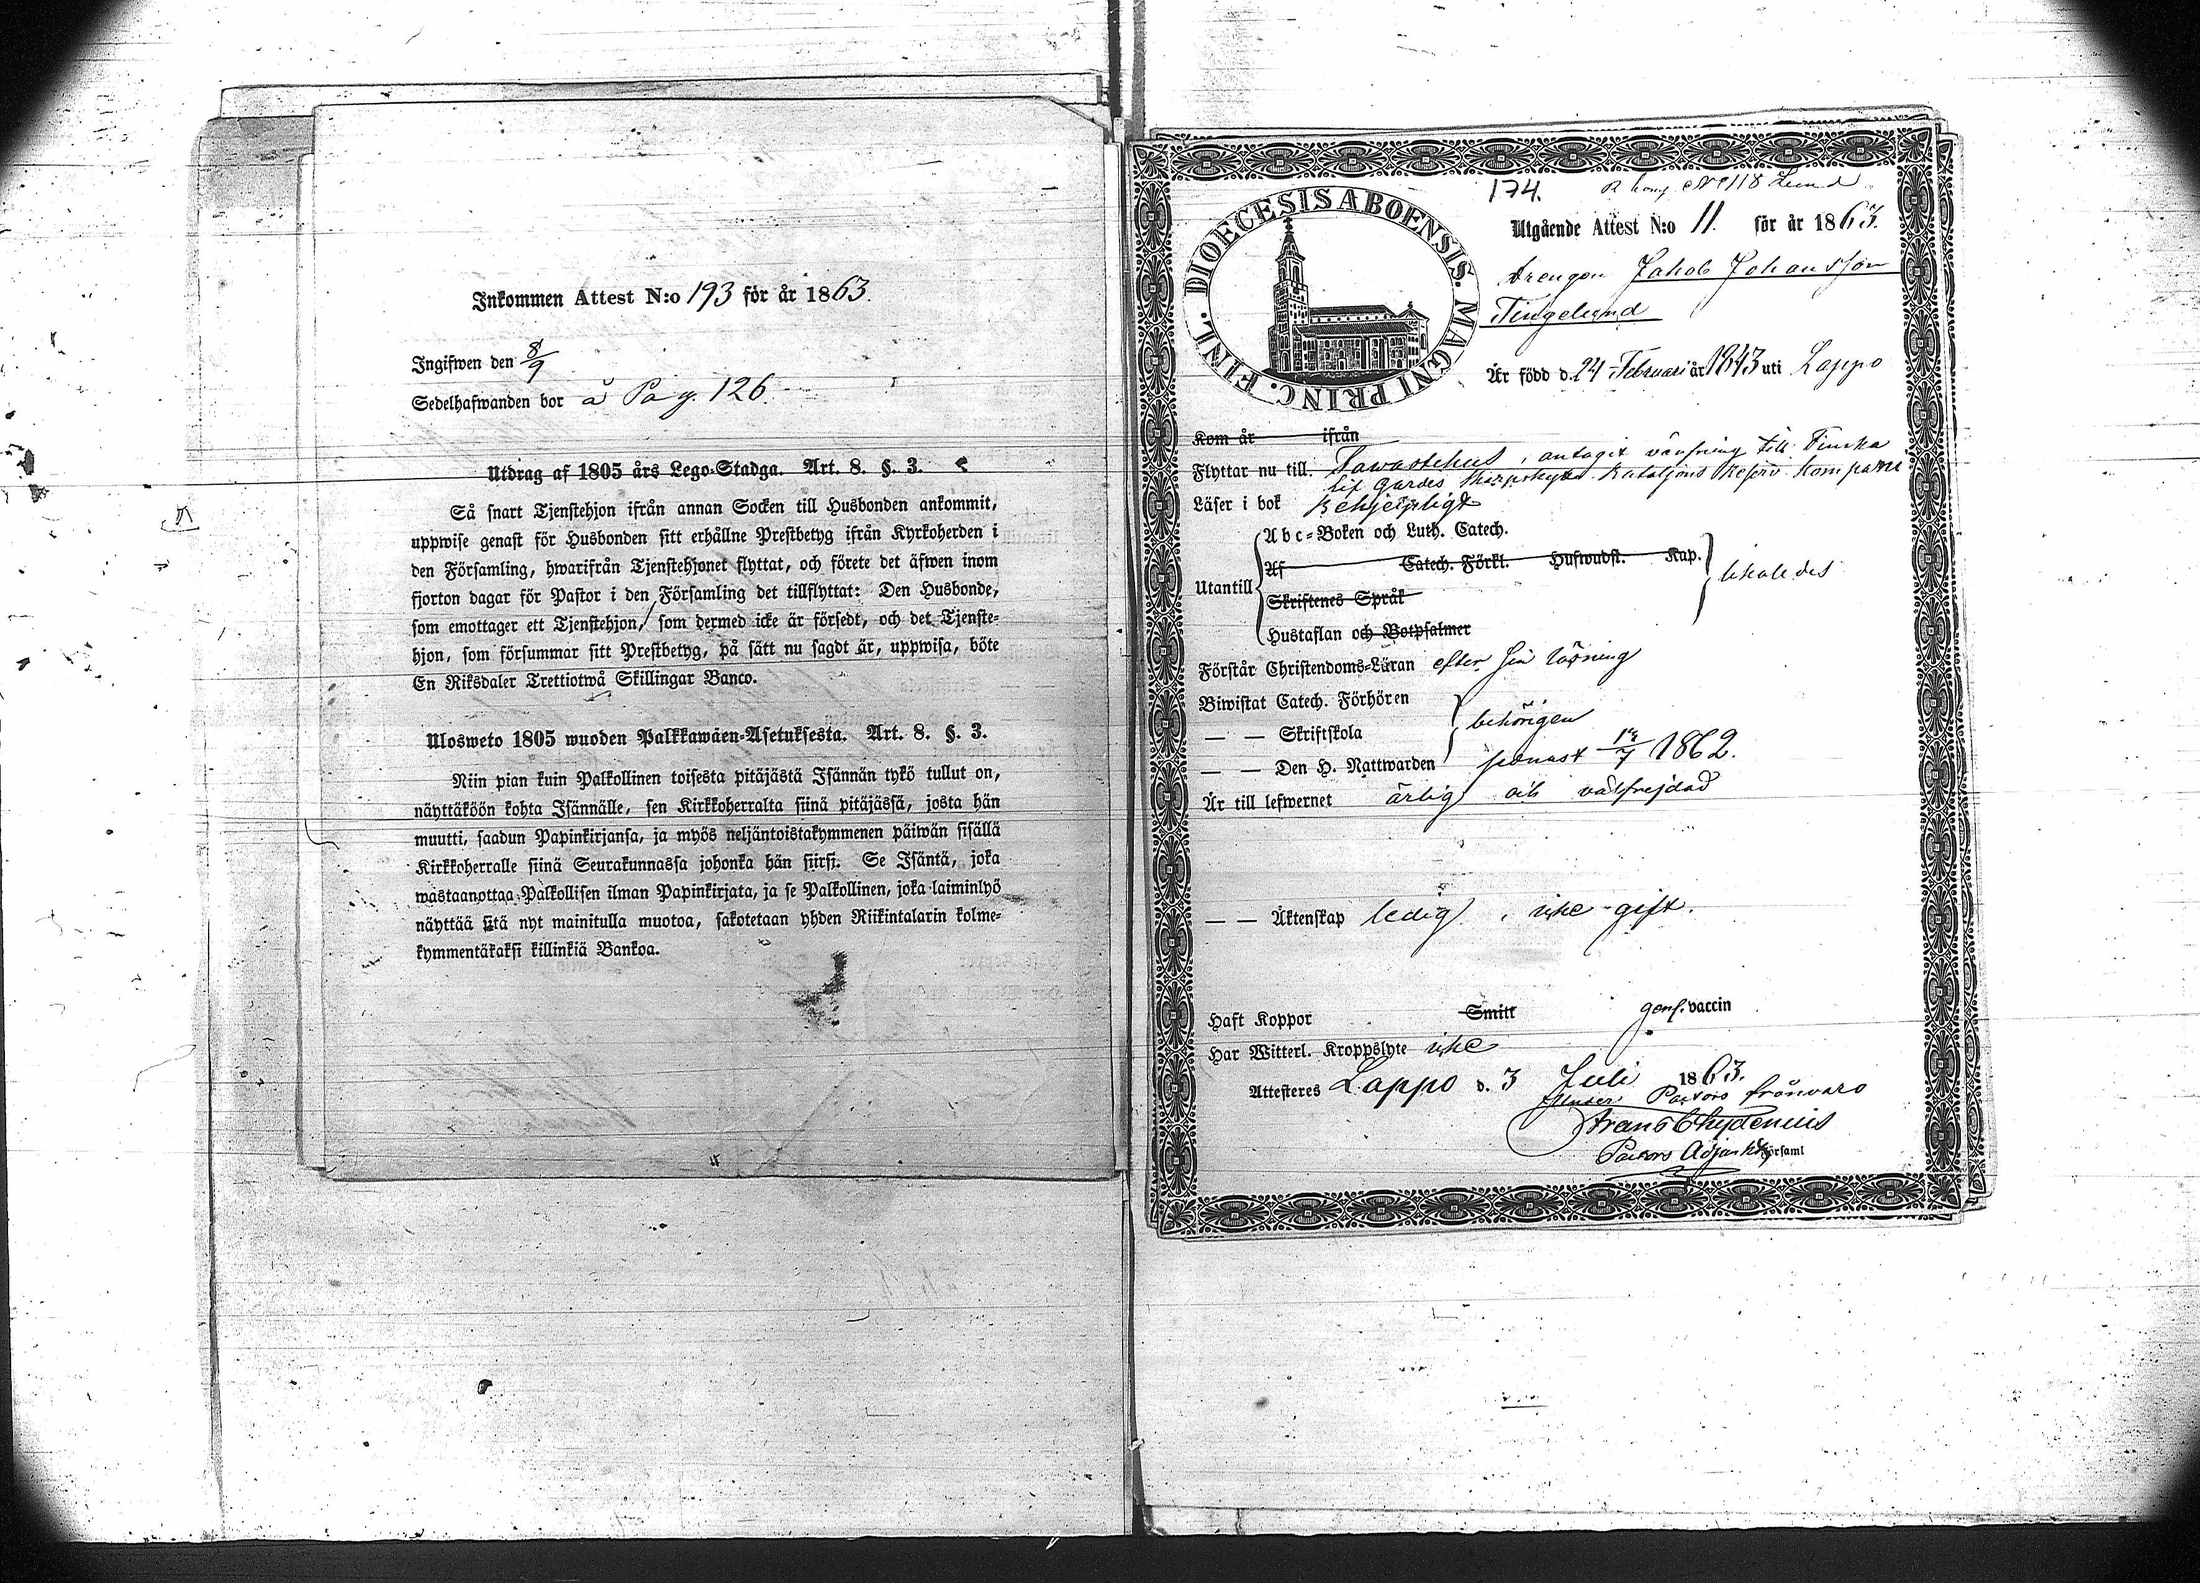 Inkommen Attest N:o 193 för år 1863.
Ingifwen den 8/9
Sedelhafwanden bor å Pag. 126.
Utdrag af 1805 års Lego-Stadga. Art. 8. §. 3.
Så snart Tjenstehjon ifrån annan Socken till Husbonden ankommit,
uppwise genast för Husbonden sitt erhållne Prestbetyg ifrån Kyrkoherden i
den Församling, hwarifrån Tjenstehjonet flyttat, och förete det äfwen inom
fjorton dagar för Pastor i den Församling det tillflyttat: Den Husbonde,
som emottager ett Tjenstehjon, som dermed icke är försedt, och det Tjenste-
hjon, som försummar sitt Prestbetyg, på sätt nu sagdt är, uppwisa, böte
En Riksdaler Trettiotwå Skillingar Banco.
Ulosweto 1805 wuoden Palkkawäen-Asetuksesta. Art. 8. §. 3.
Niin pian kuin Palkollinen toisesta pitäjästä Isännän tykö tullut on,
näyttäköön kohta Isännälle, sen Kirkkoherralta siinä pitäjässä, josta hän
muutti, saadun Papinkirjansa, ja myös neljäntoistakymmenen päiwän sisällä
Kirkkoherralle siinä Seurakunnassa johonka hän siirsi. Se Isäntä, joka
wastaanottaa Palkollisen ilman Papinkirjata, ja se Palkollinen, joka laiminlyö
näyttää sitä nyt mainitulla muotoa, sakotetaan yhden Riikintalarin kolme-
kymmentäkaksi killinkiä Bankoa.
174. N:o 118 Lund
DIOECESIS ABOENSIS. MAGNI PRINC. FINL.
Utgående Attest N:o 11. för år 1863.
drengen Jakob Johansson
Tingelund
Är född d. 24 Februari år 1843 uti Lappo
Kom år ifrån
Flyttar nu till Tawastehus, antagit värfning till Finska
Lif Gardes Skarpskytte Bataljons Reserv Kompani
Läser i bok Behjelpligt
Abc-Boken och Luth. Catech.
Af Catech. Förkl. Hufwudst. Kap.
Utantill likaledes
Skriftenes Språk
Hustaflan och Botpsalmer
Förstår Christendoms-Läran efter sin läsning
Biwistat Catech. Förhören
— — Skriftskola behörigen
— — Den H. Nattwarden senast 13/7 1862.
Är till lefwernet ärlig och välfrejdad
— — Äktenskap ledig, icke gift.
Haft Koppor Smitt genf. vaccin
Har Witterl. Kroppslyte icke
Attesteres Lappo d. 3 Juli 1863.
under Pastors frånvaro
Frans Chydenius
Pastors Adjunkt Församl